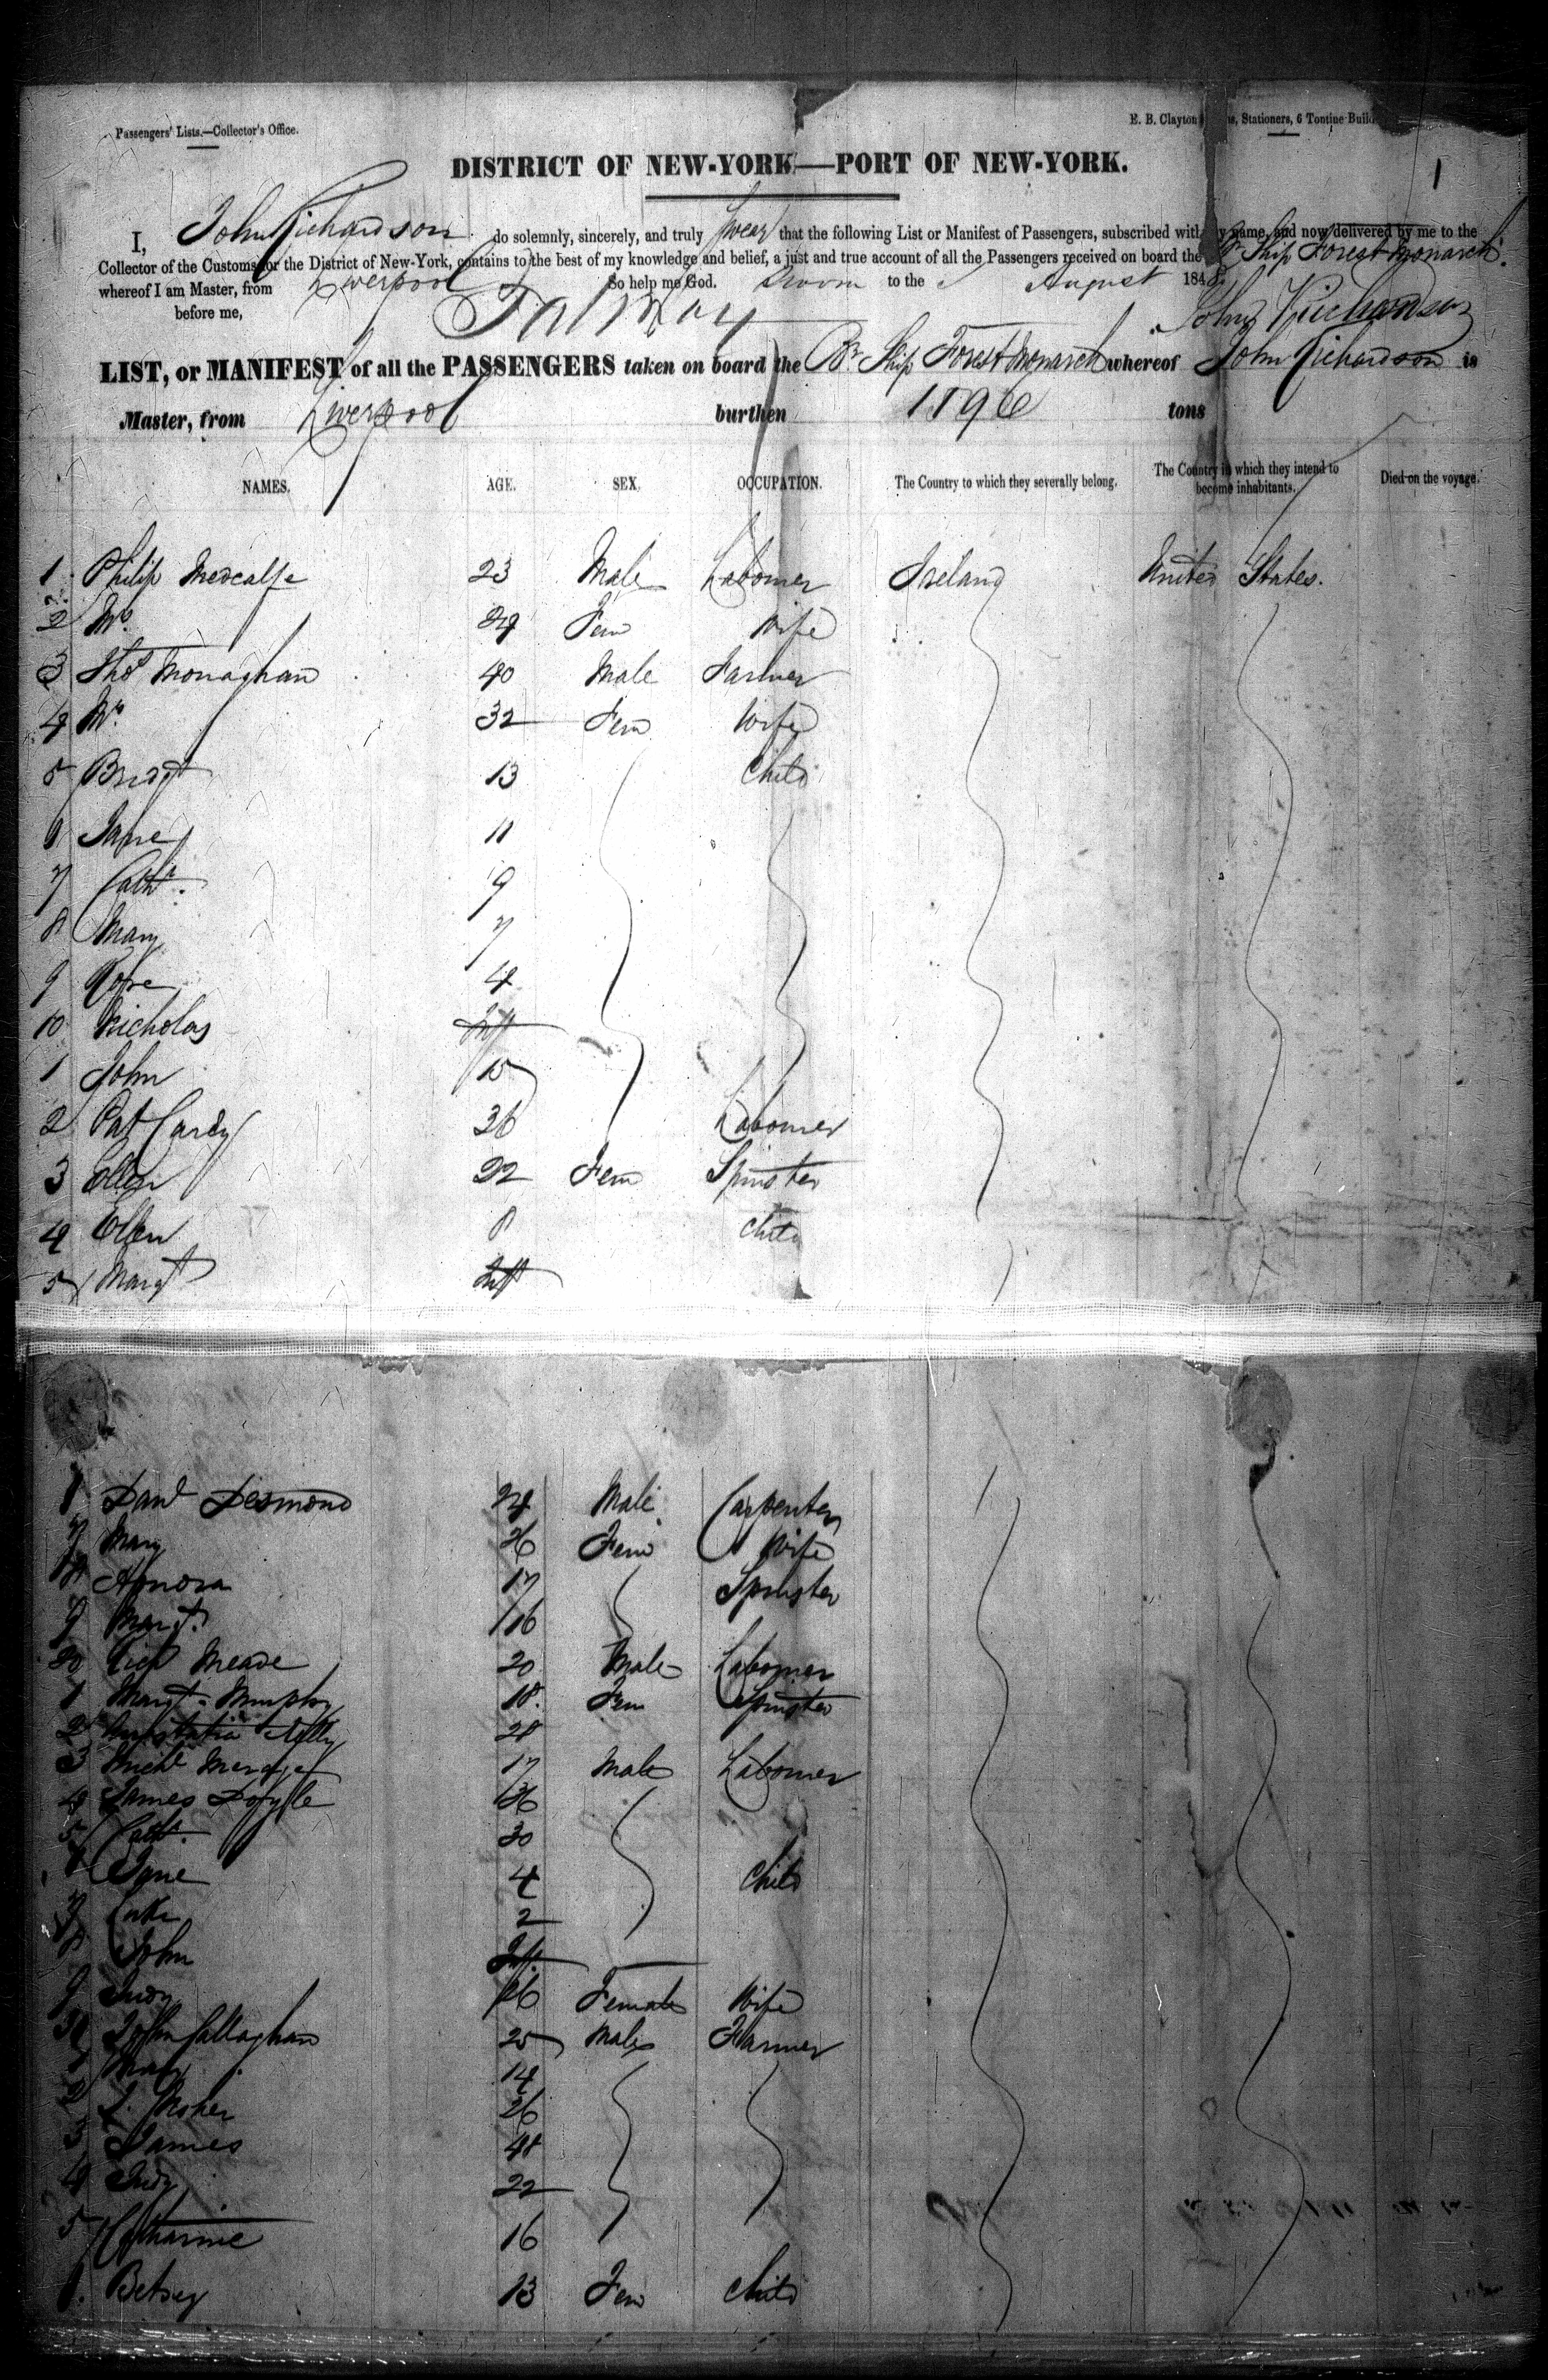 Passengers' Lists.—Collector's Office.
E. B. Clayton Stationers, 6 Tontine Build
DISTRICT OF NEW-YORK—PORT OF NEW-YORK.
1
I, John Richardson do solemnly, sincerely, and truly swear that the following List or Manifest of Passengers, subscribed with my name, and now delivered by me to the
Collector of the Customs for the District of New-York, contains to the best of my knowledge and belief, a just and true account of all the Passengers received on board the Br Ship Forest Monarch.
whereof I am Master, from Liverpool So help me God. Sworn to the August 1848
before me, John Richardson
LIST, or MANIFEST of all the PASSENGERS taken on board the Br Ship Forest Monarch whereof John Richardson is
Master, from Liverpool burthen 1896 tons
NAMES. AGE. SEX. OCCUPATION. The Country to which they severally belong. The Country in which they intend to become inhabitants. Died on the voyage.
1 Philip Medcalfe 23 Male Labourer Ireland United States.
2 Mrs 24 Fem Wife
3 Thos Monaghan 40 Male Farmer
4 Mrs 32 Fem Wife
5 Bridgt 13 Child
6 Jane 11
7 Cathe 9
8 Mary 7
9 Rose 4
10 Nicholas Inft
1 John 15
2 Pat Carey 36 Labourer
3 Ellen 22 Fem Spinster
4 Ellen 8 Child
5 Margt Inft
6 Danl Desmond 24 Male Carpenter
7 Mary 26 Fem Wife
18 Honora 17 Spinster
9 Margt 16
20 Richd Meade 20 Male Labourer
1 Margt Murphy 18 Fem Spinster
2 28
3 Michl 17 Male Labourer
4 James Doyle 36
5 Cath. 30
6 Jane 4 Child
7 2
8 John Inft
9 Judy 26 Female Wife
30 John Callaghan 25 Male Farmer
1 14
2 J. Maher 26
3 James 48
4 Judy 22
5 Catharine 16
6 Betsey 13 Fem Child